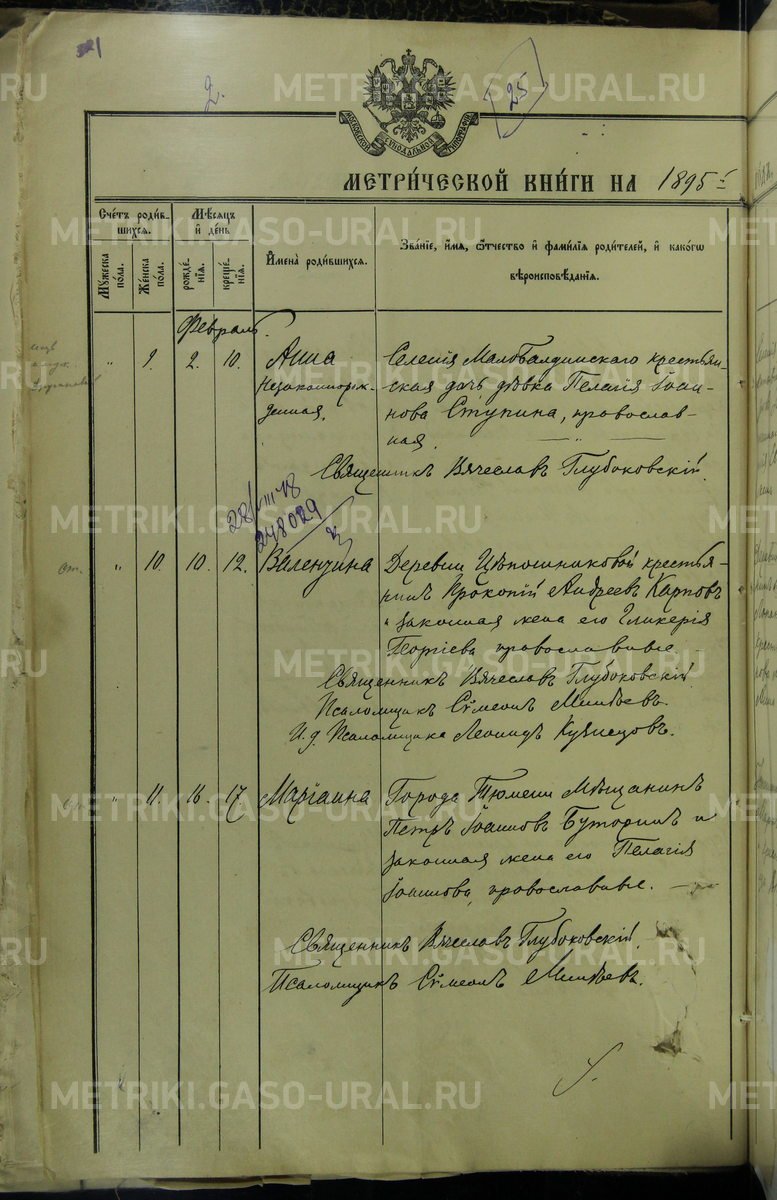 2.
25
МОСКОВСКОЙ СѴНОДАЛЬНОЙ ТИПОГРАФІИ
МЕТРИ́ЧЕСКОЙ КНИ́ГИ НА 1895 г.
Сче́тъ роди́в-
шихся.
Му́жеска
по́ла.
Же́нска
по́ла.
Мѣ́сяцъ
и҆ де́нь
рожде́-
нія.
креще́-
нія.
И҆мена̀ роди́вшихся.
Зва́ніе, и҆́мя, ѻ҆́тчество и҆ фами́лія роди́телей, и҆ како́гѡ
вѣроисповѣ́данія.
Февраль.
" 9. 2. 10.
Анна
незаконнорож-
денная.
Селенія Малобалдинскаго крестьян-
ская дочь дѣвка Пелагія Іоан-
нова Ступина, православ-
ная.
Священникъ Вячеславъ Глубоковскій.
28/VIII 48
248029
" 10. 10. 12.
Валентина
Деревни Цѣпошниковой крестья-
нинъ Прокопій Андреевъ Карповъ
и законная жена его Гликерія
Георгіева, православные.
Священникъ Вячеславъ Глубоковскій
Псаломщикъ Сѵмеонъ
И. д. Псаломщика Леонидъ Кузнецовъ.
" 11. 16. 17.
Маріанна
Города Тюмени Мѣщанинъ
Петръ Іоанновъ Буторинъ и
законная жена его Пелагія
Іоаннова, православные.
Священникъ Вячеславъ Глубоковскій.
Псаломщикъ Сѵмеонъ
METRIKI.GASO-URAL.RU